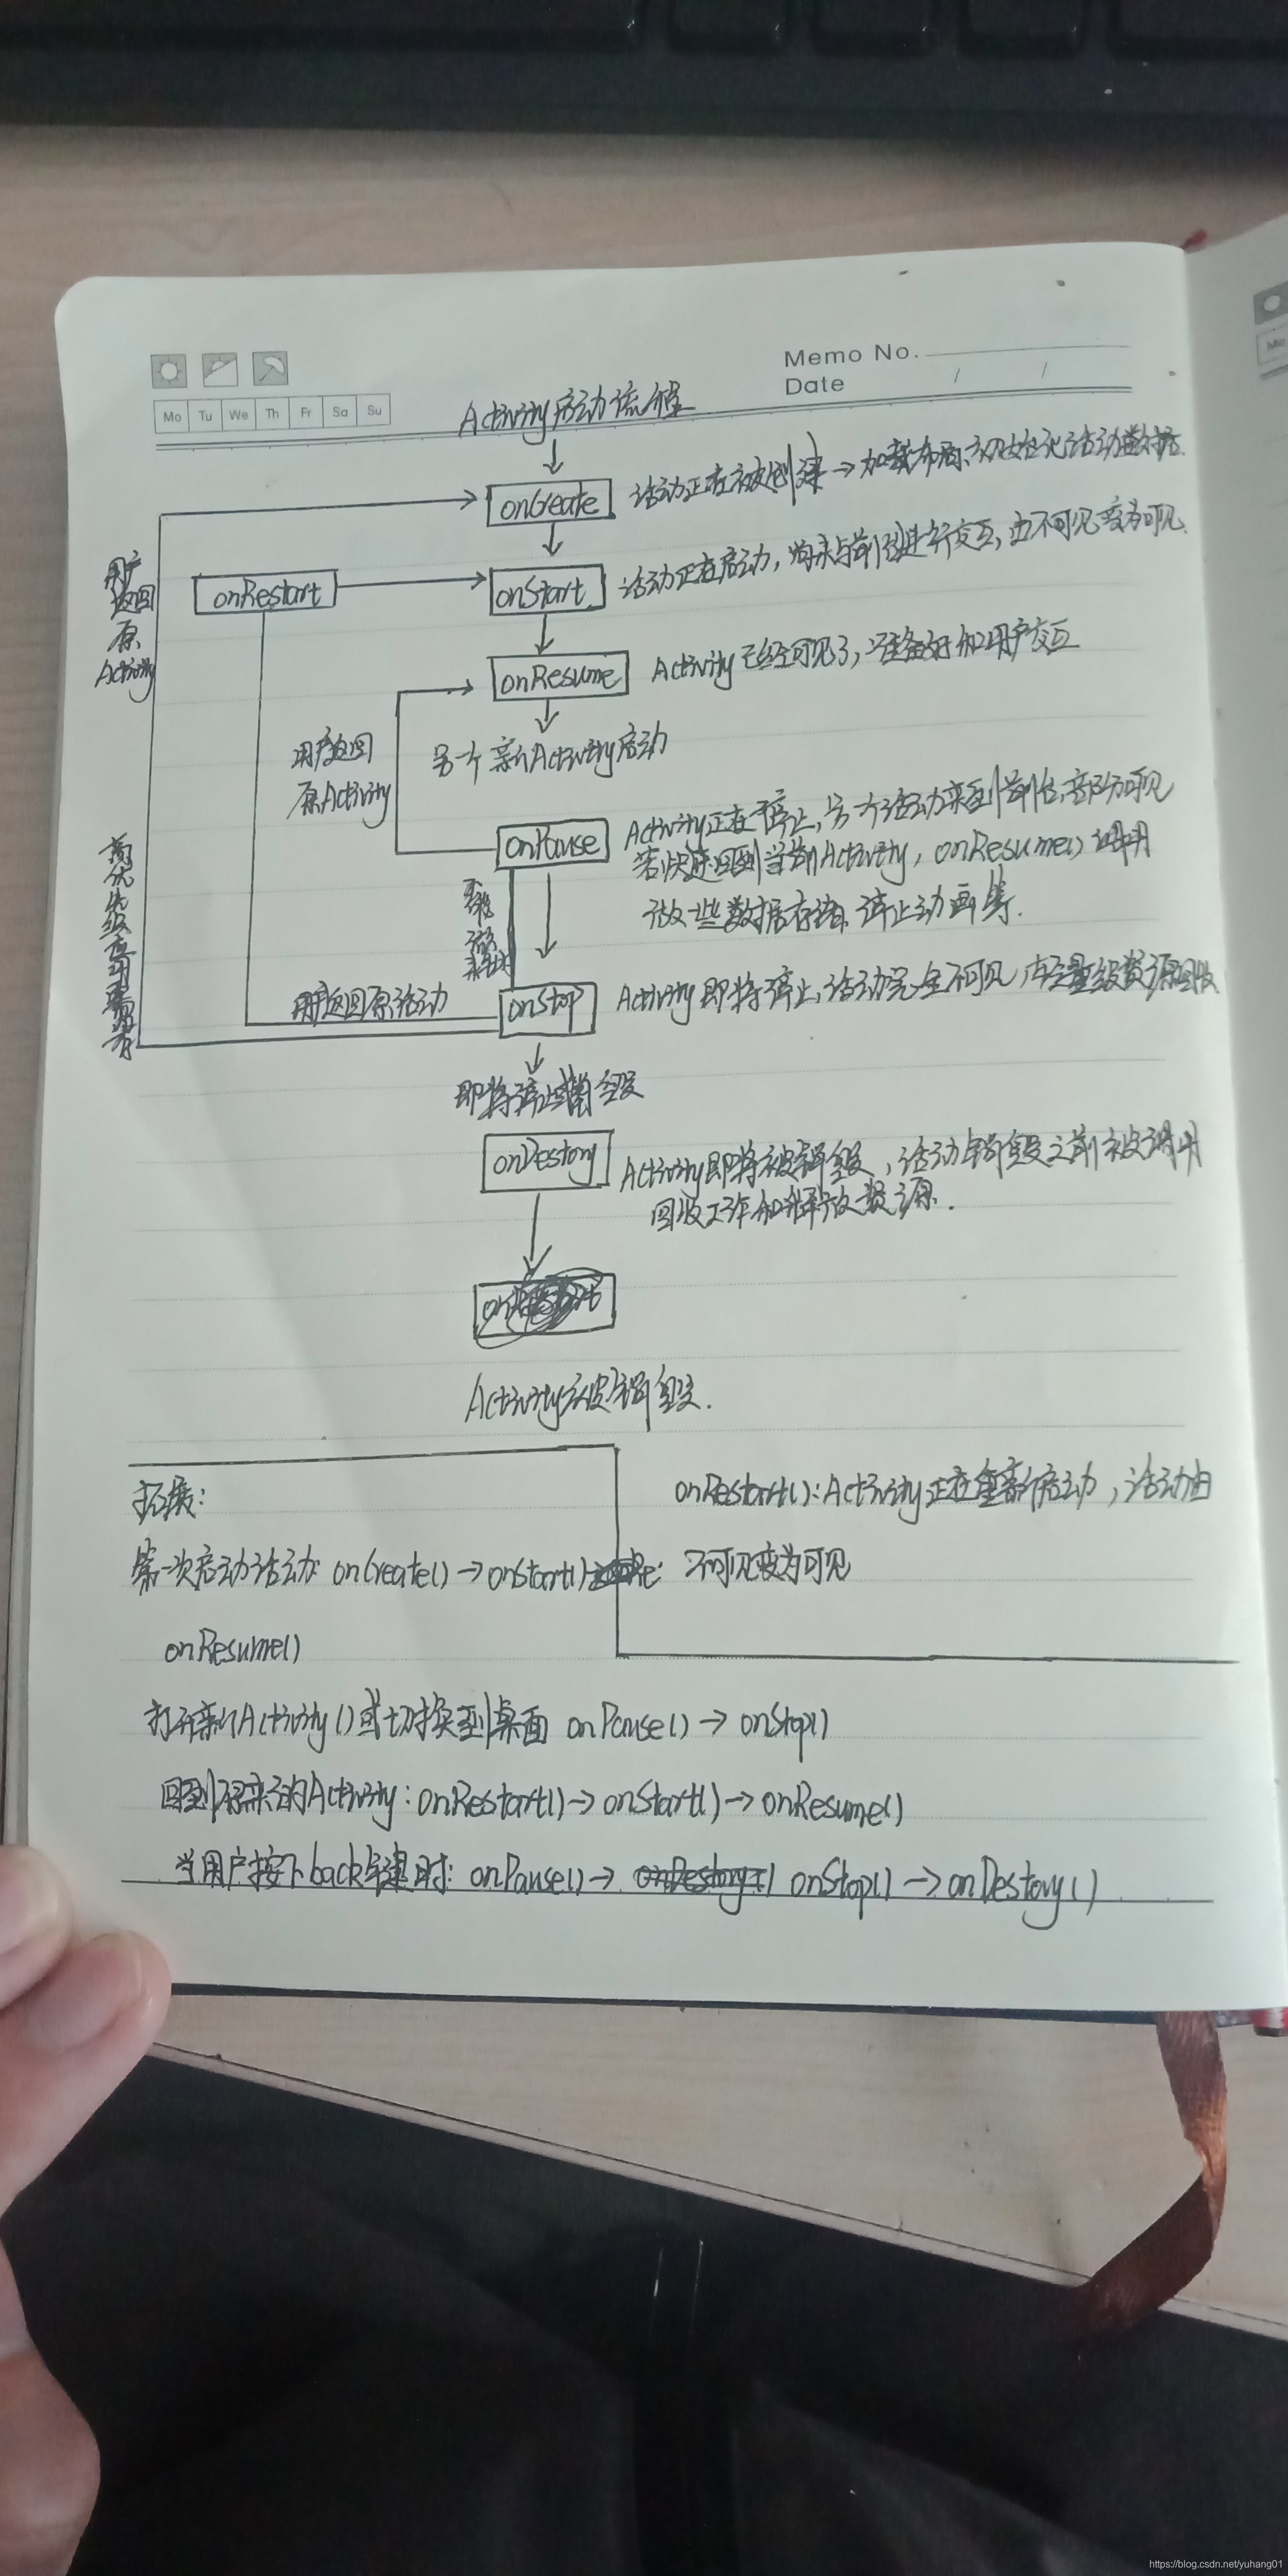 Memo No.
Date / /
Mo Tu We Th Fr Sa Su
Activity启动流程
onCreate 活动正在被创建→加载布局、初始化活动数据.
用户返回原Activity
onRestart
onStart 活动正在启动,尚未与前台进行交互,由不可见变为可见.
onResume Activity已经可见了,准备好和用户交互
用户返回
原Activity
另一个新Activity启动
onPause Activity正在停止,另一个活动来到前台,部分可见
若快速回到当前Activity,onResume()调用
做一些数据存储、停止动画等.
高优先级应用需要内存
用户返回原活动
onStop Activity即将停止,活动完全不可见,轻量级资源回收
即将停止销毁
onDestory Activity即将被销毁,活动销毁之前被调用
回收工作和释放资源.
Activity被销毁.
拓展:
onRestart():Activity正在重新启动,活动由
不可见变为可见
第一次启动活动: onCreate()→onStart()→
onResume()
打开新Activity()或切换到桌面 onPause()→onStop()
回到原来的Activity:onRestart()→onStart()→onResume()
当用户按下back键时:onPause()→ onStop()→onDestory()
https://blog.csdn.net/yuhang01